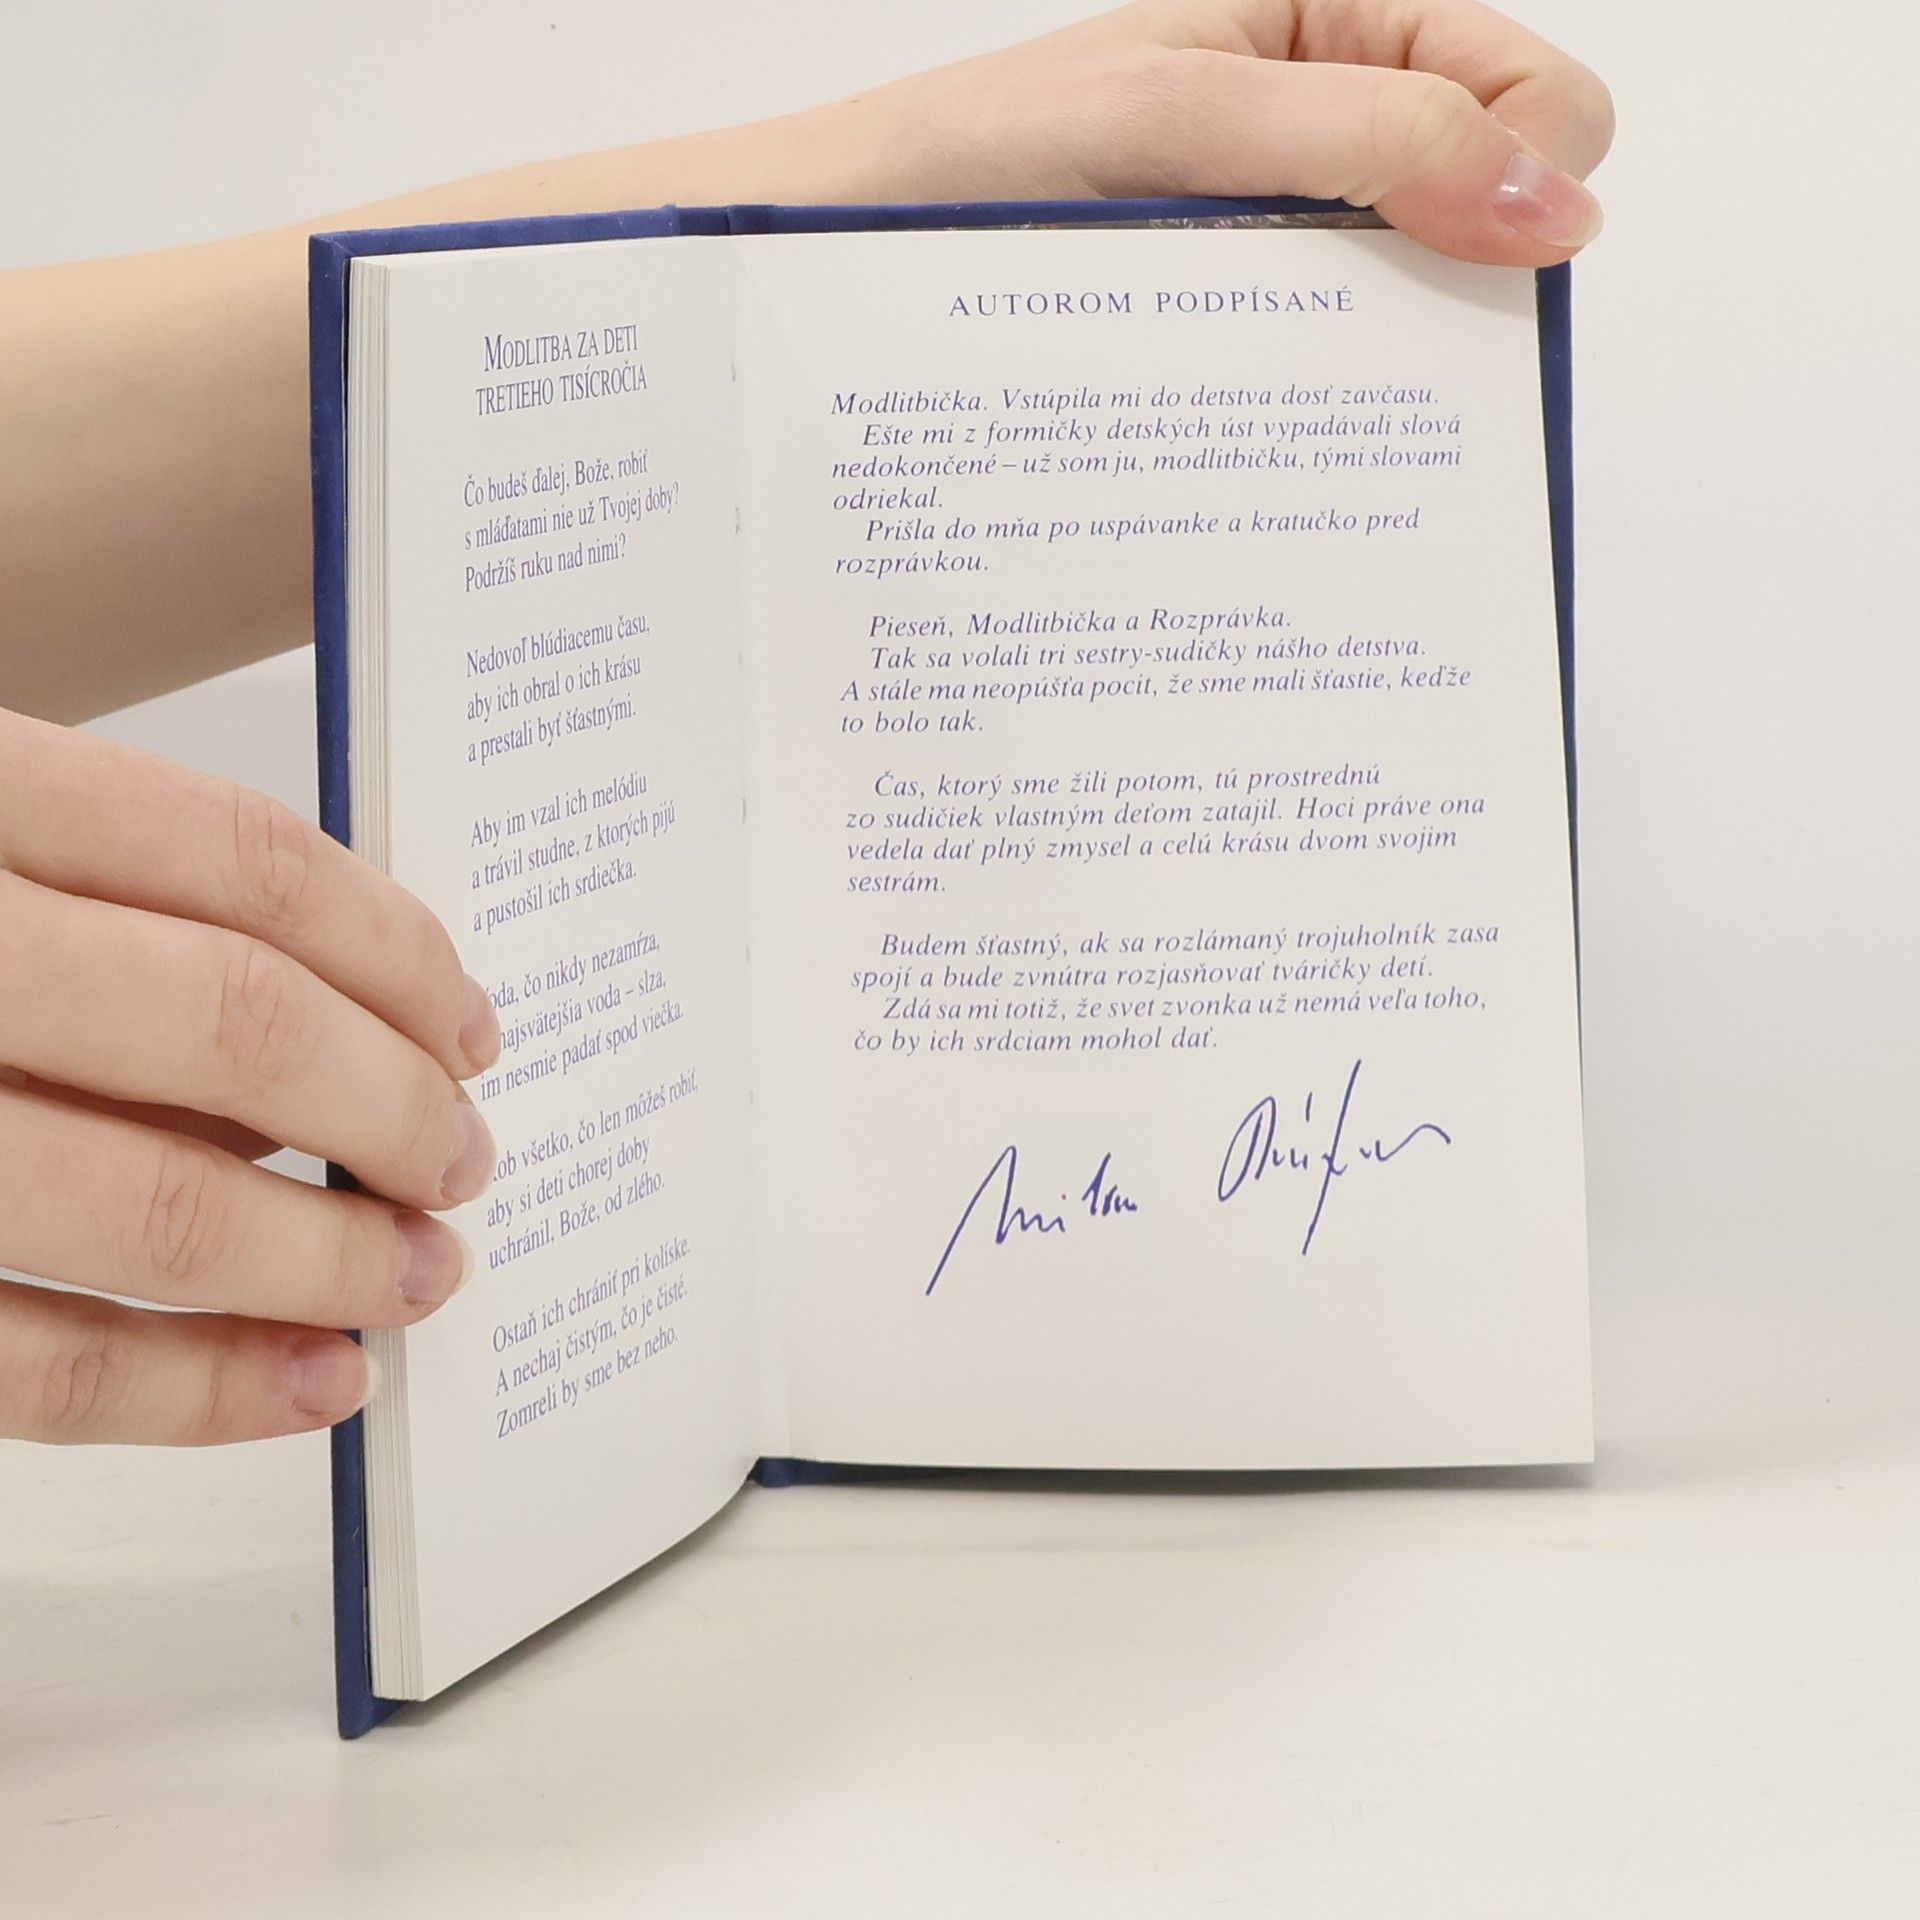 MODLITBA ZA DETI
TRETIEHO TISÍCROČIA
Čo budeš ďalej, Bože, robiť
s mláďatami nie už Tvojej doby?
Podržíš ruku nad nimi?
Nedovoľ blúdiacemu času,
aby ich obral o ich krásu
a prestali byť šťastnými.
Aby im vzal ich melódiu
a trávil studne, z ktorých pijú
a pustošil ich srdiečka.
oda, čo nikdy nezamŕza,
najsvätejšia voda – slza,
im nesmie padať spod viečka.
ob všetko, čo len môžeš robiť,
aby si deti chorej doby
uchránil, Bože, od zlého.
Ostaň ich chrániť pri kolíske.
A nechaj čistým, čo je čisté.
Zomreli by sme bez neho.
AUTOROM PODPÍSANÉ
Modlitbička. Vstúpila mi do detstva dosť zavčasu.
Ešte mi z formičky detských úst vypadávali slová
nedokončené – už som ju, modlitbičku, tými slovami
odriekal.
Prišla do mňa po uspávanke a kratučko pred
rozprávkou.
Pieseň, Modlitbička a Rozprávka.
Tak sa volali tri sestry-sudičky nášho detstva.
A stále ma neopúšťa pocit, že sme mali šťastie, keďže
to bolo tak.
Čas, ktorý sme žili potom, tú prostrednú
zo sudičiek vlastným deťom zatajil. Hoci práve ona
vedela dať plný zmysel a celú krásu dvom svojim
sestrám.
Budem šťastný, ak sa rozlámaný trojuholník zasa
spojí a bude zvnútra rozjasňovať tváričky detí.
Zdá sa mi totiž, že svet zvonka už nemá veľa toho,
čo by ich srdciam mohol dať.
Milan Rúfus